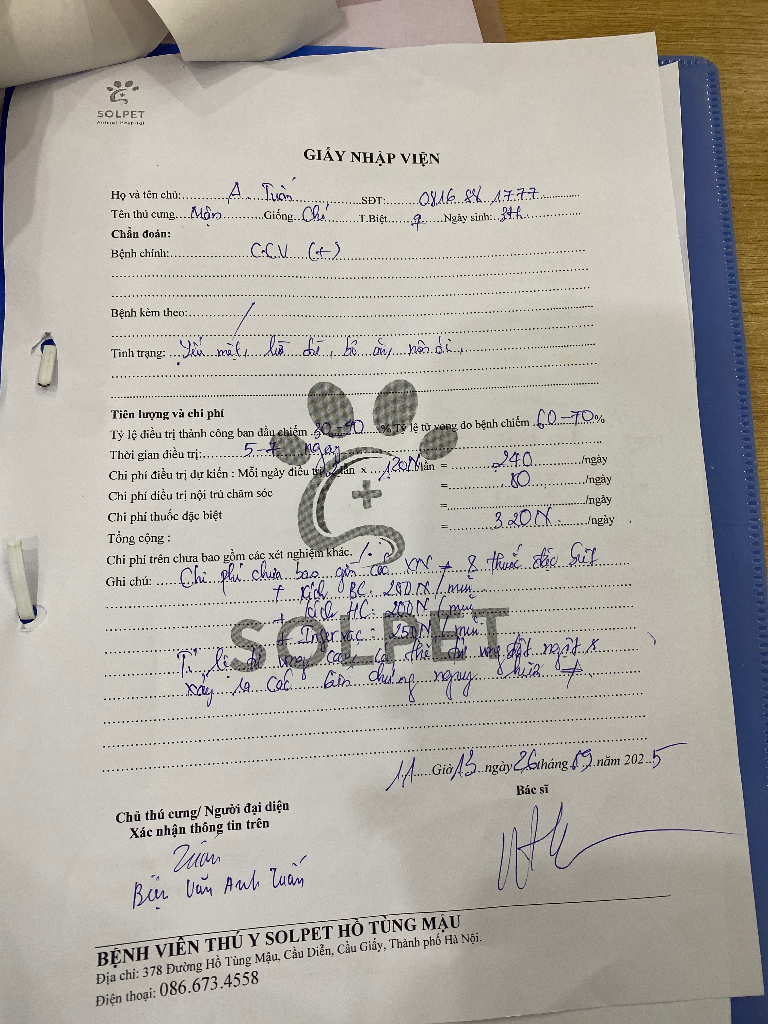 SOLPET
Animal Hospital
GIẤY NHẬP VIỆN
Họ và tên chủ: A. Tuấn SĐT: 0816 88 1777
Tên thú cưng Mận Giống Chó T.Biệt ♀ Ngày sinh: 3th
Chẩn đoán:
Bệnh chính: CCV (+)
Bệnh kèm theo: /
Tình trạng: Yếu mệt, lừ đừ, bỏ ăn, nôn
Tiên lượng và chi phí
Tỷ lệ điều trị thành công ban đầu chiếm % Tỷ lệ tử vong do bệnh chiếm 60-70%
Thời gian điều trị: 5-7 ngày
Chi phí điều trị dự kiến : Mỗi ngày điều trị 2 lần x 120N lần = 240 /ngày
Chi phí điều trị nội trú chăm sóc = 80 /ngày
Chi phí thuốc đặc biệt = /ngày
Tổng cộng : = 320N /ngày
Chi phí trên chưa bao gồm các xét nghiệm khác.
Ghi chú: Chi phí chưa bao gồm các XN + thuốc đặc
+ Kích BC: 280N/mũi
+ Kích HC: 200N/mũi
+ : 250N/mũi
SOLPET
Tỉ lệ tử vong cao, có thể tử vong đột ngột
xảy ra các biến chứng nguy hiểm
11 Giờ 13 ngày 26 tháng 09 năm 2025
Chủ thú cưng/ Người đại diện Bác sĩ
Xác nhận thông tin trên
Tuấn
Văn Anh Tuấn
BỆNH VIỆN THÚ Y SOLPET HỒ TÙNG MẬU
Địa chỉ: 378 Đường Hồ Tùng Mậu, Cầu Diễn, Cầu Giấy, Thành phố Hà Nội.
Điện thoại: 086.673.4558